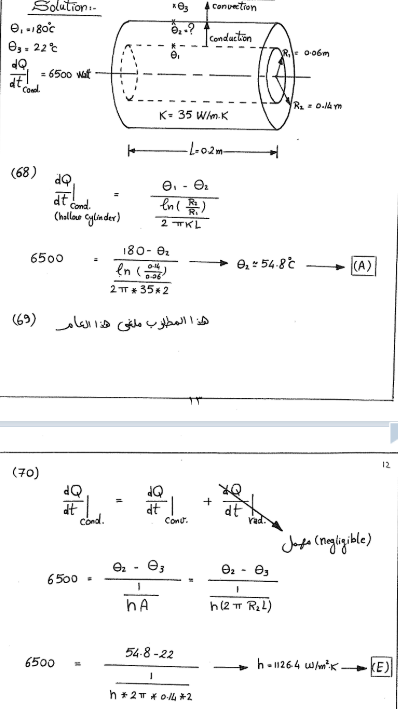 Solution:-
θ₁ = 180°C
θ₃ = 22°C
dQ/dt|Cond. = 6500 watt
×θ₃ convection
θ₂ = ?
conduction
×θ₁
R₁ = 0.06m
R₂ = 0.14m
K = 35 W/m.K
L = 0.2m
(68) dQ/dt|Cond. (hollow cylinder) = (θ₁ - θ₂) / (ln(R₂/R₁) / 2πKL)
6500 = (180 - θ₂) / (ln(0.14/0.06) / 2π*35*2) → θ₂ ≈ 54.8°C → (A)
(69) هذا المطلوب ملغى هذا العام
١٣
12
(70)
dQ/dt|Cond. = dQ/dt|Conv. + dQ/dt|rad.
(negligible)
6500 = (θ₂ - θ₃) / (1 / hA) = (θ₂ - θ₃) / (1 / h(2πR₂L))
6500 = (54.8 - 22) / (1 / h*2π*0.14*2) → h = 1126.4 W/m².K → (E)